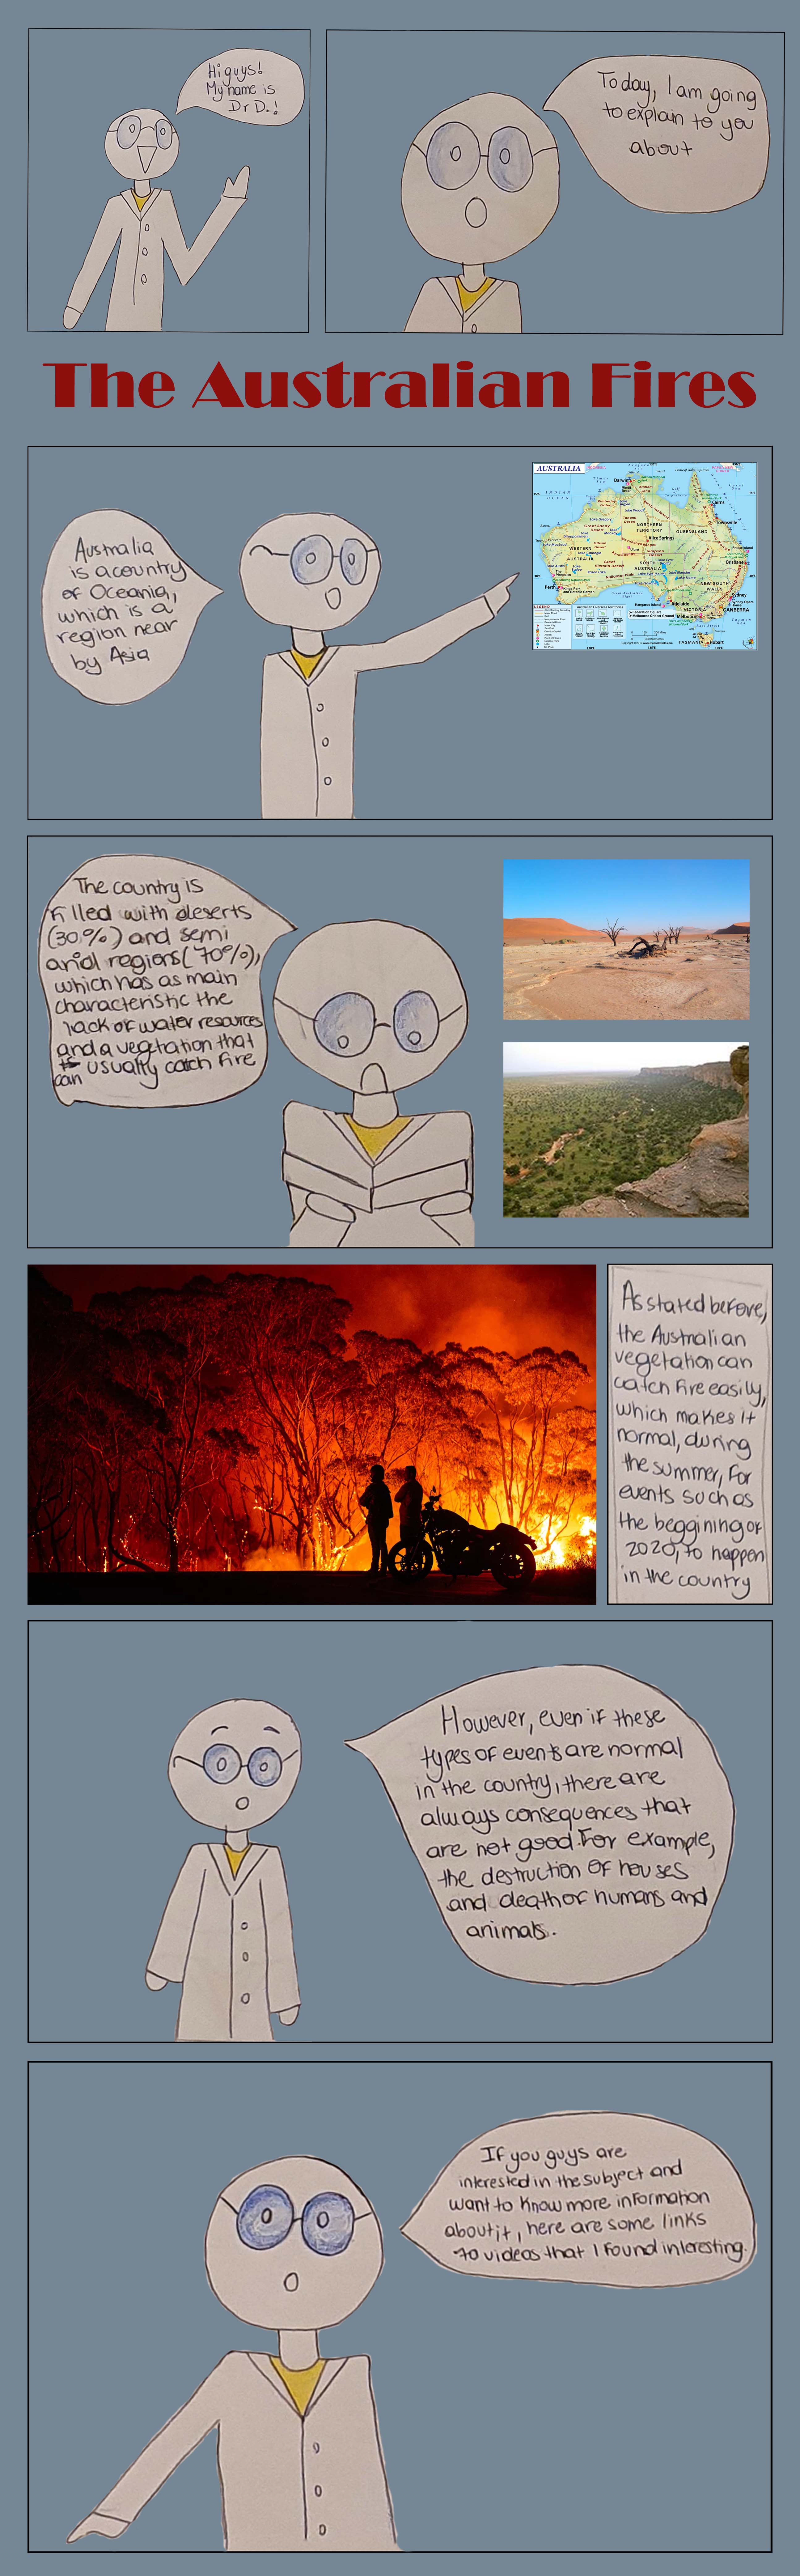 Hi guys!
My name is
Dr D.!
Today, I am going
to explain to you
about
The Australian Fires
Australia
is a country
of Oceania,
which is a
region near
by Asia
AUSTRALIA
INDIAN
OCEAN
Darwin
Cairns
Townsville
NORTHERN
TERRITORY
QUEENSLAND
Alice Springs
WESTERN
AUSTRALIA
SOUTH
AUSTRALIA
Brisbane
NEW SOUTH
WALES
Perth
Adelaide
Sydney
CANBERRA
VICTORIA
Melbourne
TASMANIA
Hobart
LEGEND
The country is
filled with deserts
(30%) and semi
arid regions (70%),
which has as main
characteristic the
lack of water resources
and a vegetation that
can usually catch fire
As stated before,
the Australian
vegetation can
catch fire easily,
which makes it
normal, during
the summer, for
events such as
the beggining of
2020, to happen
in the country
However, even if these
types of events are normal
in the country, there are
always consequences that
are not good. For example,
the destruction of houses
and death of humans and
animals.
If you guys are
interested in the subject and
want to know more information
about it, here are some links
to videos that I found interesting.